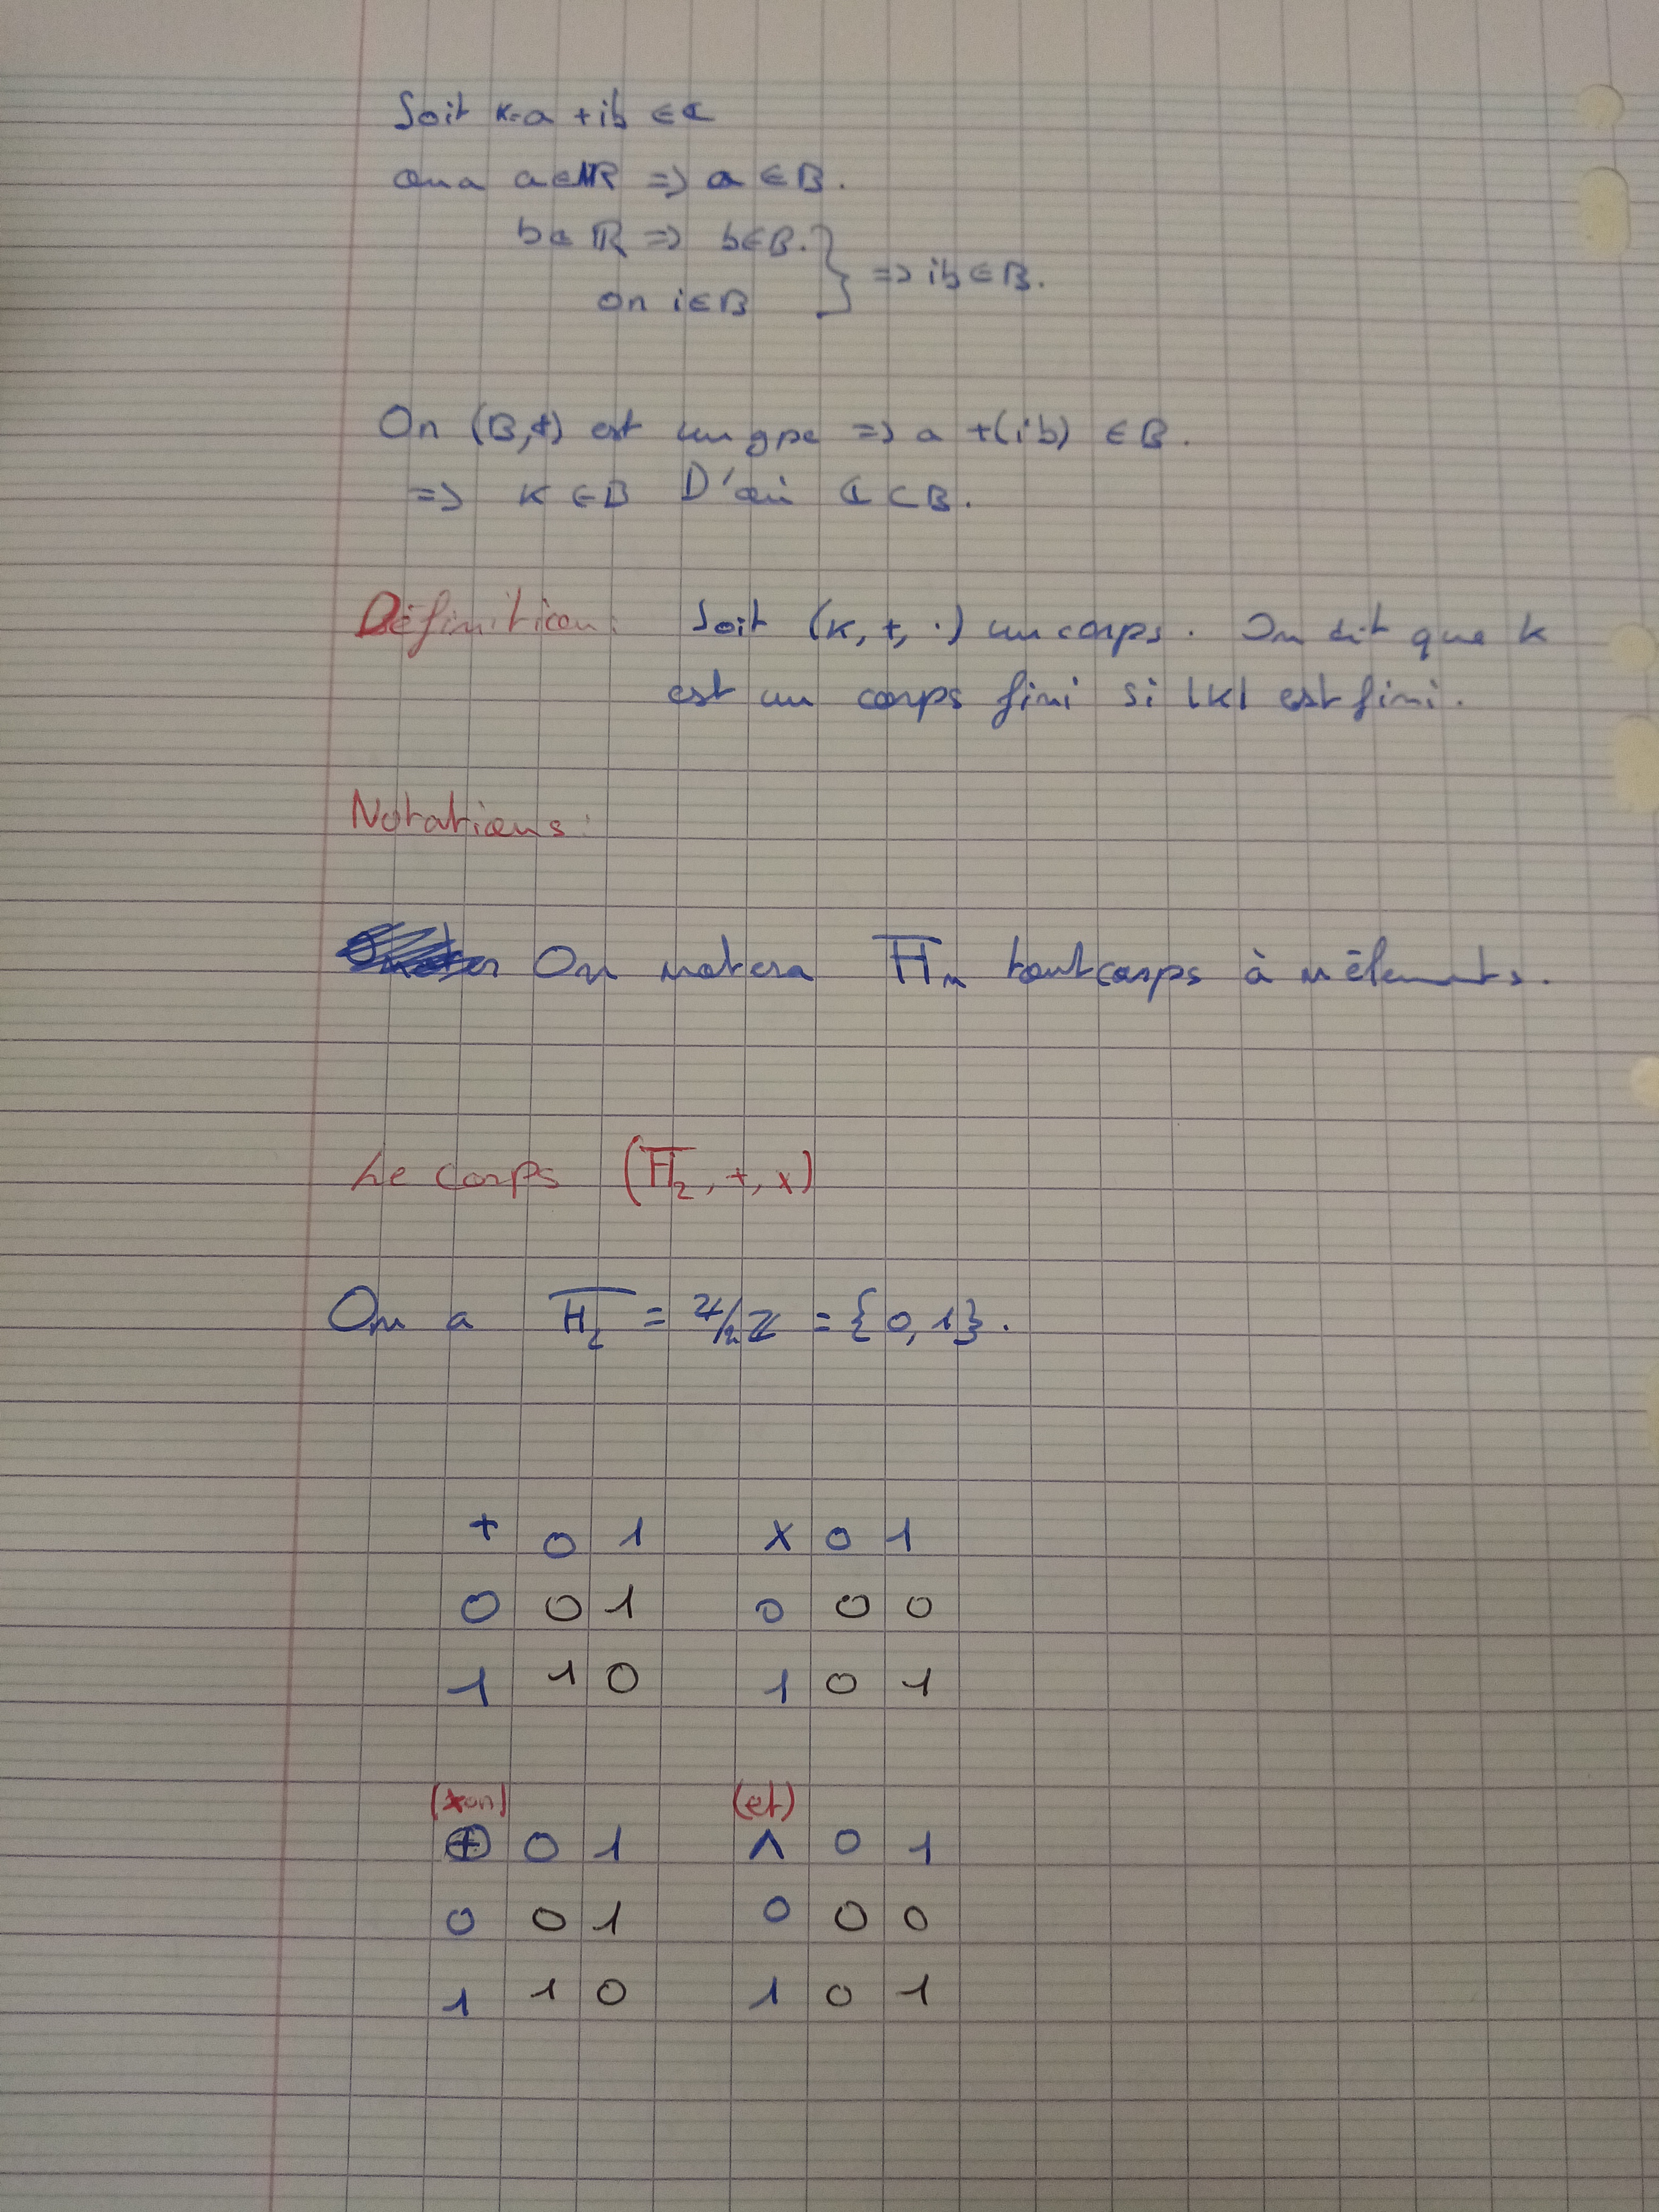 Soit k=a +ib ∈ ℂ
on a a∈ℝ => a ∈ B.
b∈ ℝ => b∈B.
on i∈B } => ib∈B.
On (B,+) est un gpe => a +(ib) ∈ B.
=> K ∈ B D'où ℂ ⊂ B.
Définition: Soit (K, +, ·) un corps. On dit que K
est un corps fini si |K| est fini.
Notations:
On notera 𝔽n tout corps à n éléments.
Le corps (𝔽2, +, x)
On a 𝔽2 = ℤ/2ℤ = {0, 1}.
+ 0 1 x 0 1
0 0 1 0 0 0
1 1 0 1 0 1
(xor) (et)
⊕ 0 1 ∧ 0 1
0 0 1 0 0 0
1 1 0 1 0 1